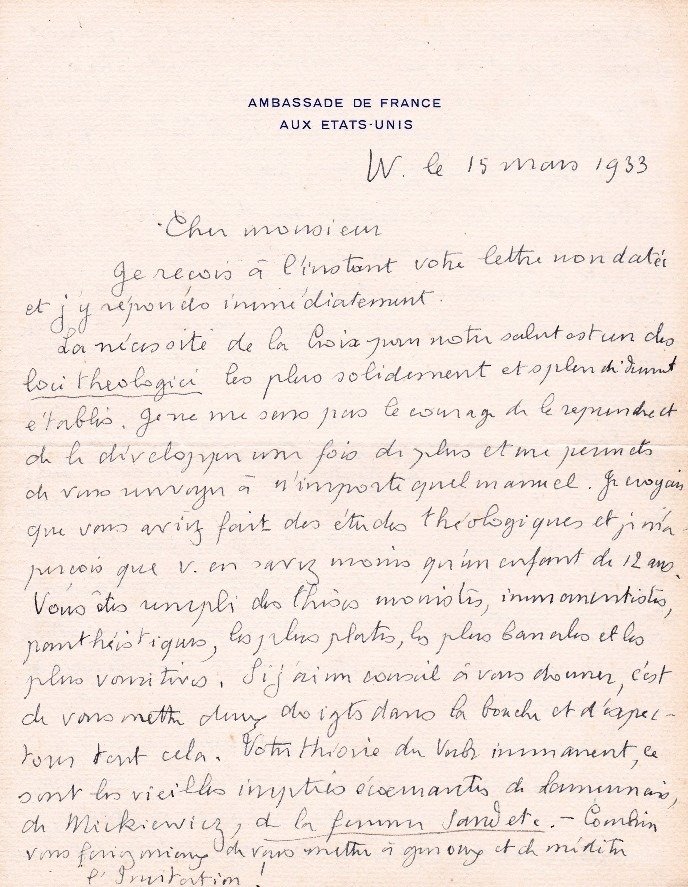 AMBASSADE DE FRANCE
AUX ETATS-UNIS
W. le 15 mars 1933
Cher monsieur
Je reçois à l'instant votre lettre non datée
et j'y réponds immédiatement.
La nécessité de la Croix pour notre salut est un des
loci theologici les plus solidement et splendidement
établis. Je ne me sens pas le courage de le reprendre et
de le développer une fois de plus et me permets
de vous renvoyer à n'importe quel manuel. Je croyais
que vous aviez fait des études théologiques et je m'a-
perçois que v. en savez moins qu'un enfant de 12 ans.
Vous êtes rempli des thèses monistes, immanentistes,
panthéistiques, les plus plates, les plus banales et les
plus vomitives. Si j'ai un conseil à vous donner, c'est
de vous mettre deux doigts dans la bouche et d'expec-
torer tout cela. Votre théorie du Verbe immanent, ce
sont les vieilles inepties écœurantes de Lamennais,
de Mickiewicz, de la femme Sand etc. – Combien
vous feriez mieux de vous mettre à genoux et de méditer
l'Imitation !